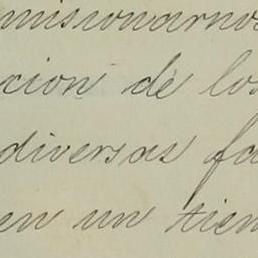 misionarnos
cion de los
diversas fa
en un tiem